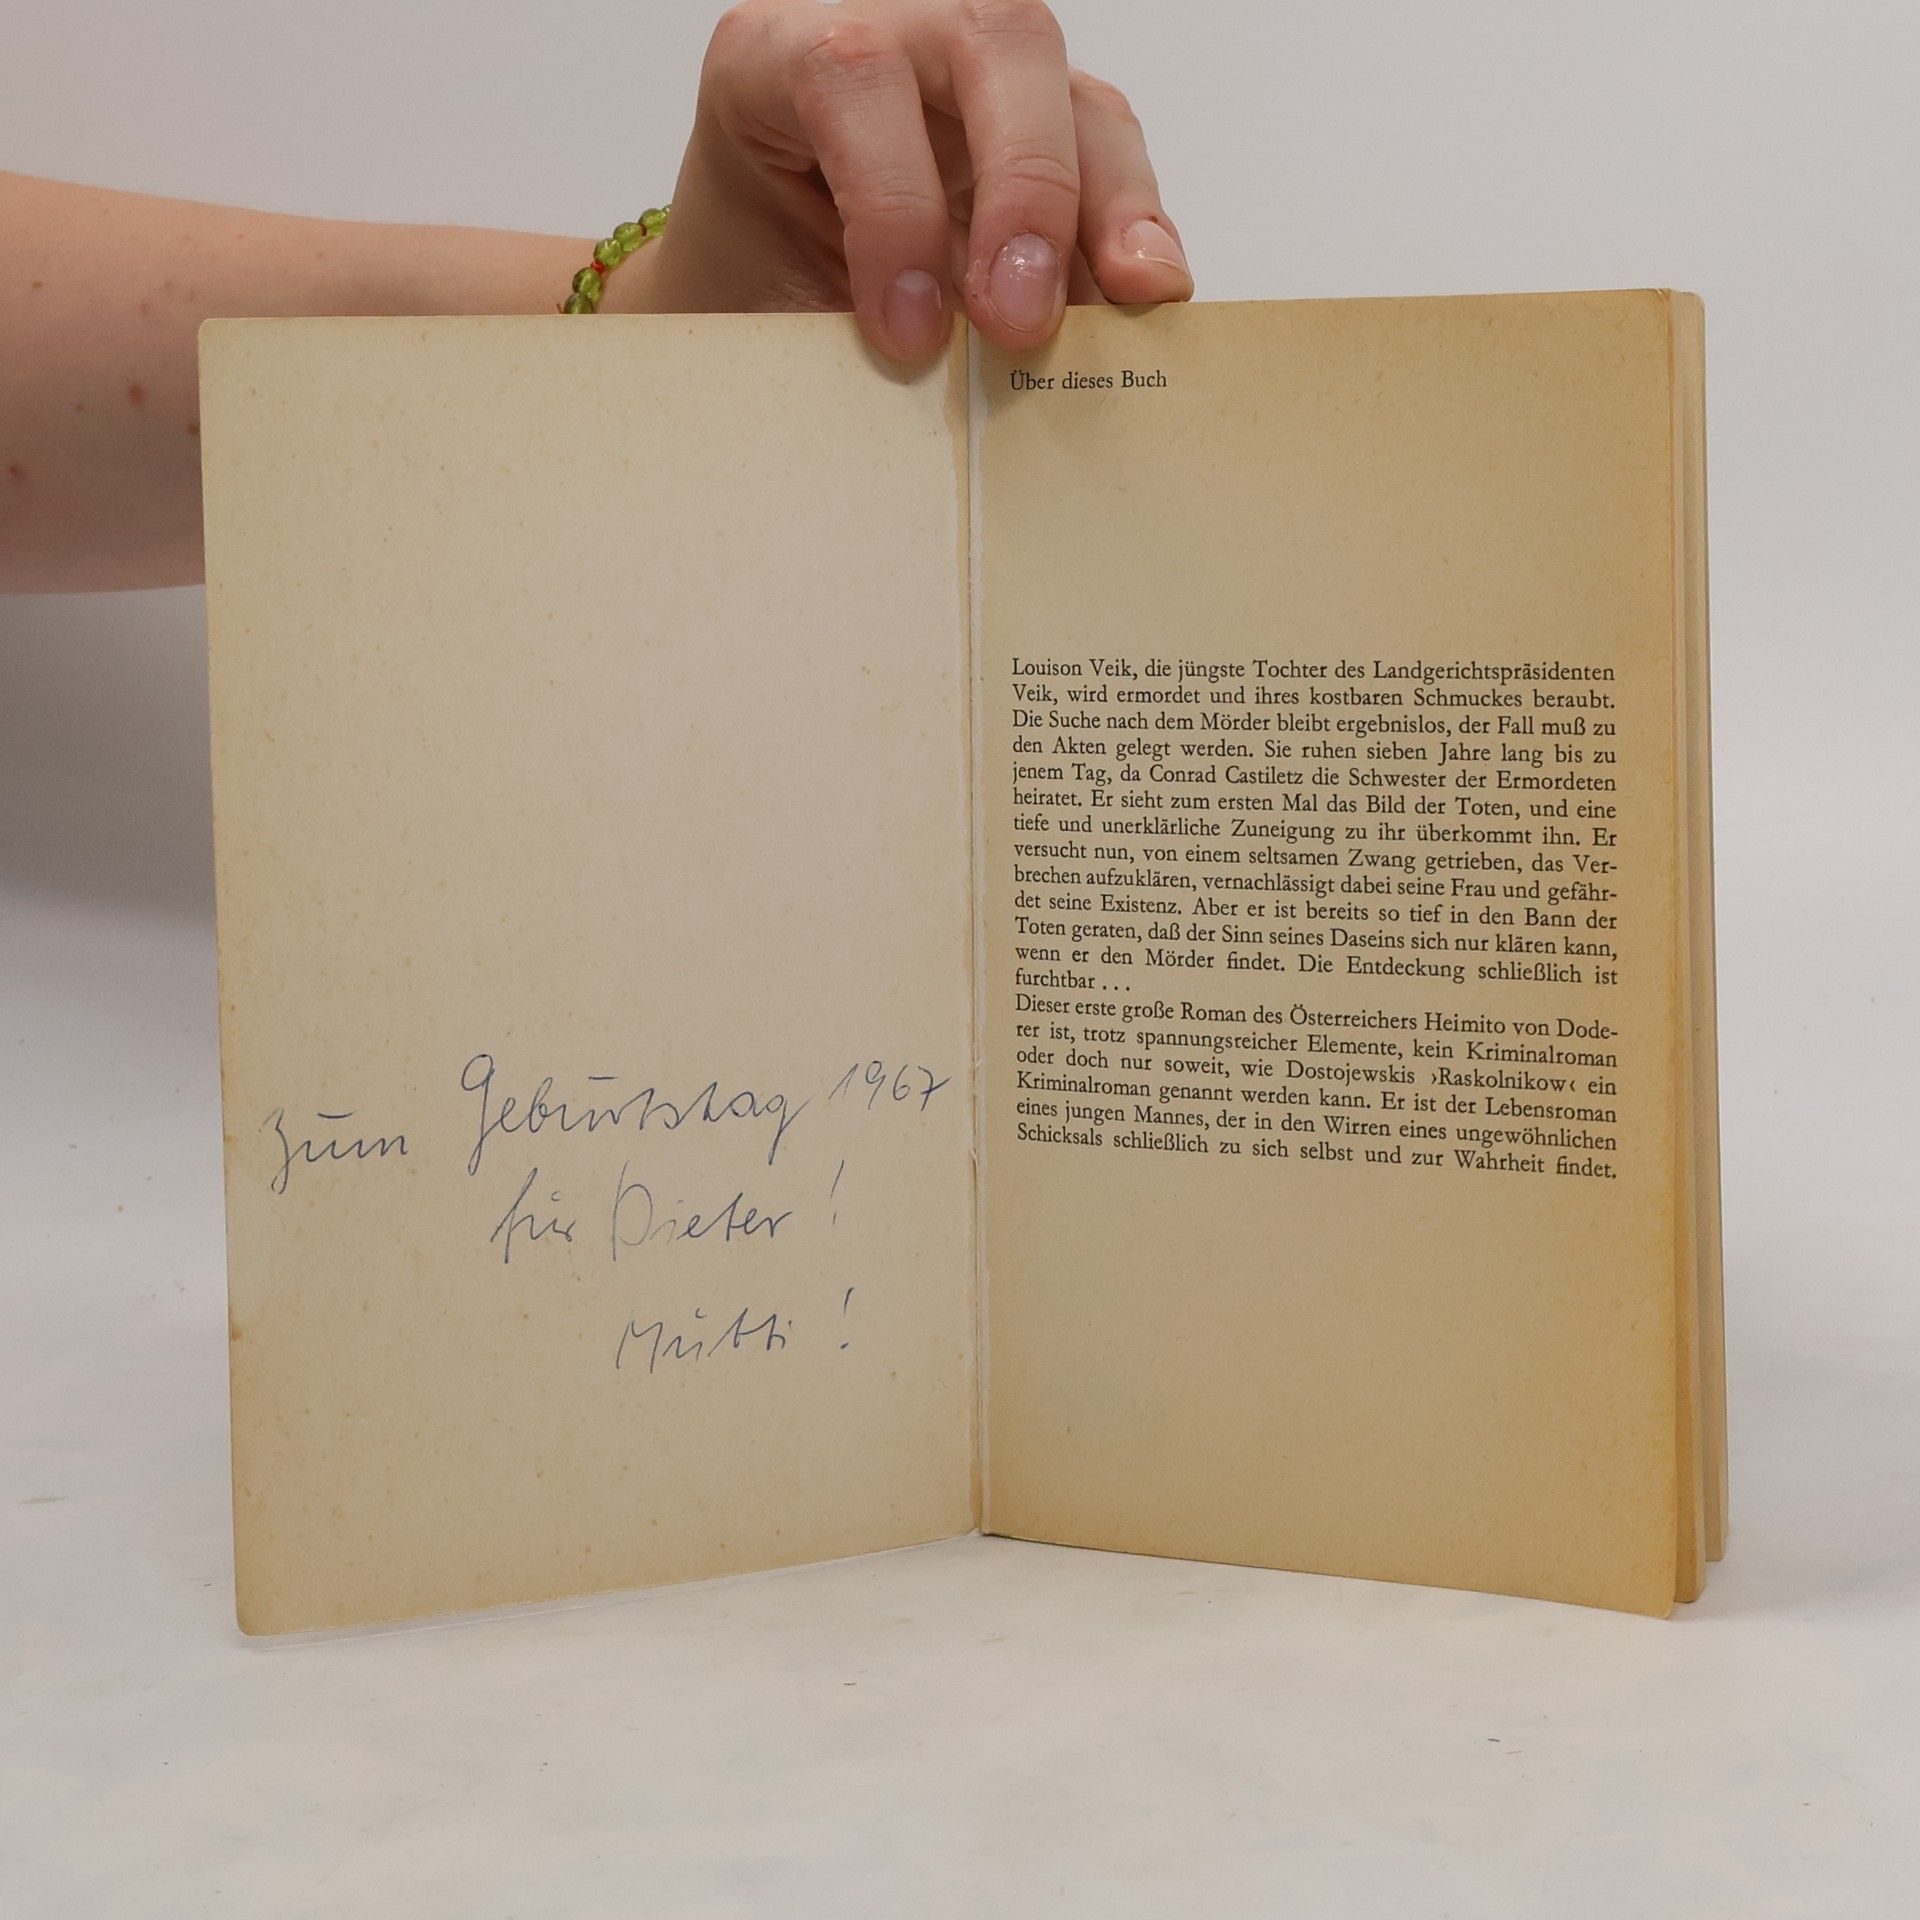 Zum Geburtstag 1967
für Dieter !
Mutti !
Über dieses Buch
Louison Veik, die jüngste Tochter des Landgerichtspräsidenten
Veik, wird ermordet und ihres kostbaren Schmuckes beraubt.
Die Suche nach dem Mörder bleibt ergebnislos, der Fall muß zu
den Akten gelegt werden. Sie ruhen sieben Jahre lang bis zu
jenem Tag, da Conrad Castiletz die Schwester der Ermordeten
heiratet. Er sieht zum ersten Mal das Bild der Toten, und eine
tiefe und unerklärliche Zuneigung zu ihr überkommt ihn. Er
versucht nun, von einem seltsamen Zwang getrieben, das Ver-
brechen aufzuklären, vernachlässigt dabei seine Frau und gefähr-
det seine Existenz. Aber er ist bereits so tief in den Bann der
Toten geraten, daß der Sinn seines Daseins sich nur klären kann,
wenn er den Mörder findet. Die Entdeckung schließlich ist
furchtbar . . .
Dieser erste große Roman des Österreichers Heimito von Dode-
rer ist, trotz spannungsreicher Elemente, kein Kriminalroman
oder doch nur soweit, wie Dostojewskis ›Raskolnikow‹ ein
Kriminalroman genannt werden kann. Er ist der Lebensroman
eines jungen Mannes, der in den Wirren eines ungewöhnlichen
Schicksals schließlich zu sich selbst und zur Wahrheit findet.